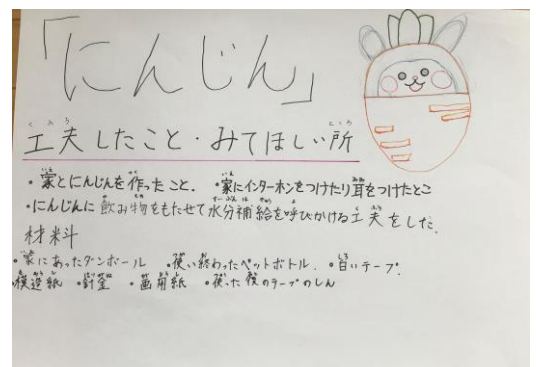 「にんじん」
工夫したこと・みてほしい所
・家とにんじんを作ったこと. ・家にインターホンをつけたり耳をつけたとこ
・にんじんに飲み物をもたせて水分補給を呼びかける工夫をした.
材料
・家にあったダンボール ・使い終わったペットボトル. ・白いテープ.
・模造紙 ・針金 ・画用紙 ・使った後のテープのしん